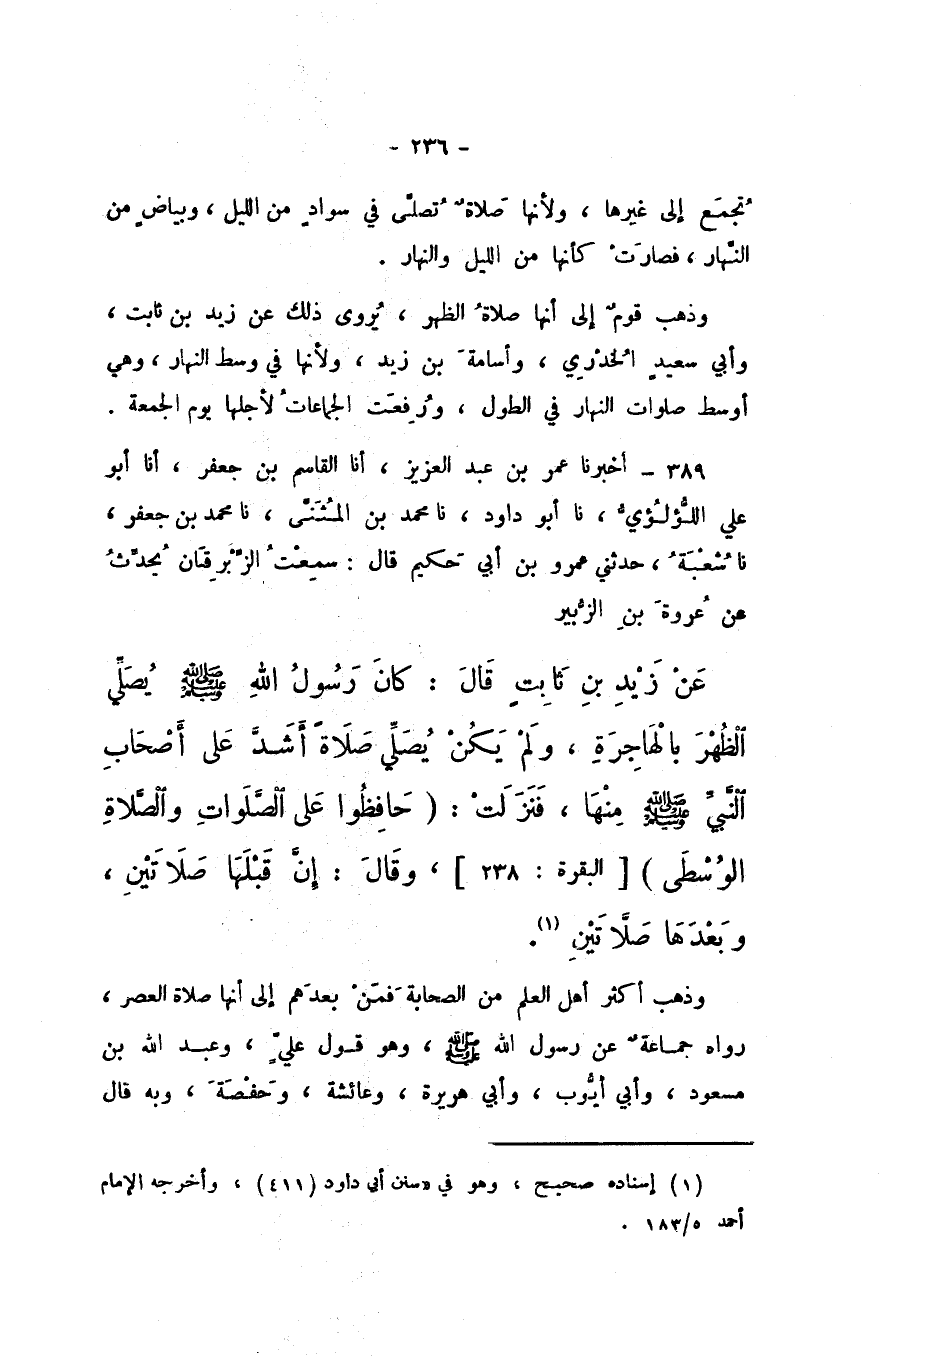 - ٢٣٦ -
تُجمَع إلى غيرها ، ولأنها صَلاةٌ تُصلَّى في سوادٍ من الليل ، وبياضٍ من
النَّهار ، فصارَتْ كأنها من الليل والنهار .
وذهب قومٌ إلى أنها صلاةُ الظهر ، يُروى ذلك عن زيد بن ثابت ،
وأبي سعيدٍ الخُدْرِي ، وأسامةَ بن زيد ، ولأنها في وسط النهار ، وهي
أوسط صلوات النهار في الطول ، ورُفِعَت الجماعاتُ لأجلها يوم الجمعة .
٣٨٩ - أخبرنا عمر بن عبد العزيز ، أنا القاسم بن جعفر ، أنا أبو
علي اللُّؤلُؤيُّ ، نا أبو داود ، نا محمد بن المُثَنَّى ، نا محمد بن جعفر ،
نا شُعْبَةُ ، حدثني عمرو بن أبي حَكيم قال : سمِعْتُ الزِّبْرِقَان يُحدِّثُ
عن عُروةَ بنِ الزُّبير
عَنْ زَيْدِ بنِ ثَابِتٍ قَالَ : كانَ رَسُولُ اللهِ ﷺ يُصَلِّي
الظُّهْرَ بالْهَاجِرَةِ ، ولَمْ يَكُنْ يُصَلِّي صَلَاةً أَشَدَّ عَلى أَصْحَابِ
النَّبيِّ ﷺ مِنْهَا ، فَنَزَلَتْ : ( حَافِظُوا عَلى الصَّلَواتِ والصَّلاةِ
الوُسْطَى ) [ البقرة : ٢٣٨ ] ، وقَالَ : إنَّ قَبْلَهَا صَلَاتَيْنِ ،
وبَعْدَهَا صَلَّاتَيْنِ (١).
وذهب أكثر أهل العلم من الصحابة فَمَنْ بعدَهم إلى أنها صلاة العصر ،
رواه جمـاعةٌ عن رسول الله ﷺ ، وهو قـول عليٍّ ، وعبـد الله بن
مسعود ، وأبي أيُّوب ، وأبي هريرة ، وعائشة ، وحَفْصَةَ ، وبه قال
(١) إسناده صحيح ، وهو في «سنن أبي داود (٤١١) ، وأخرجه الإمام
أحمد ١٨٣/٥ .